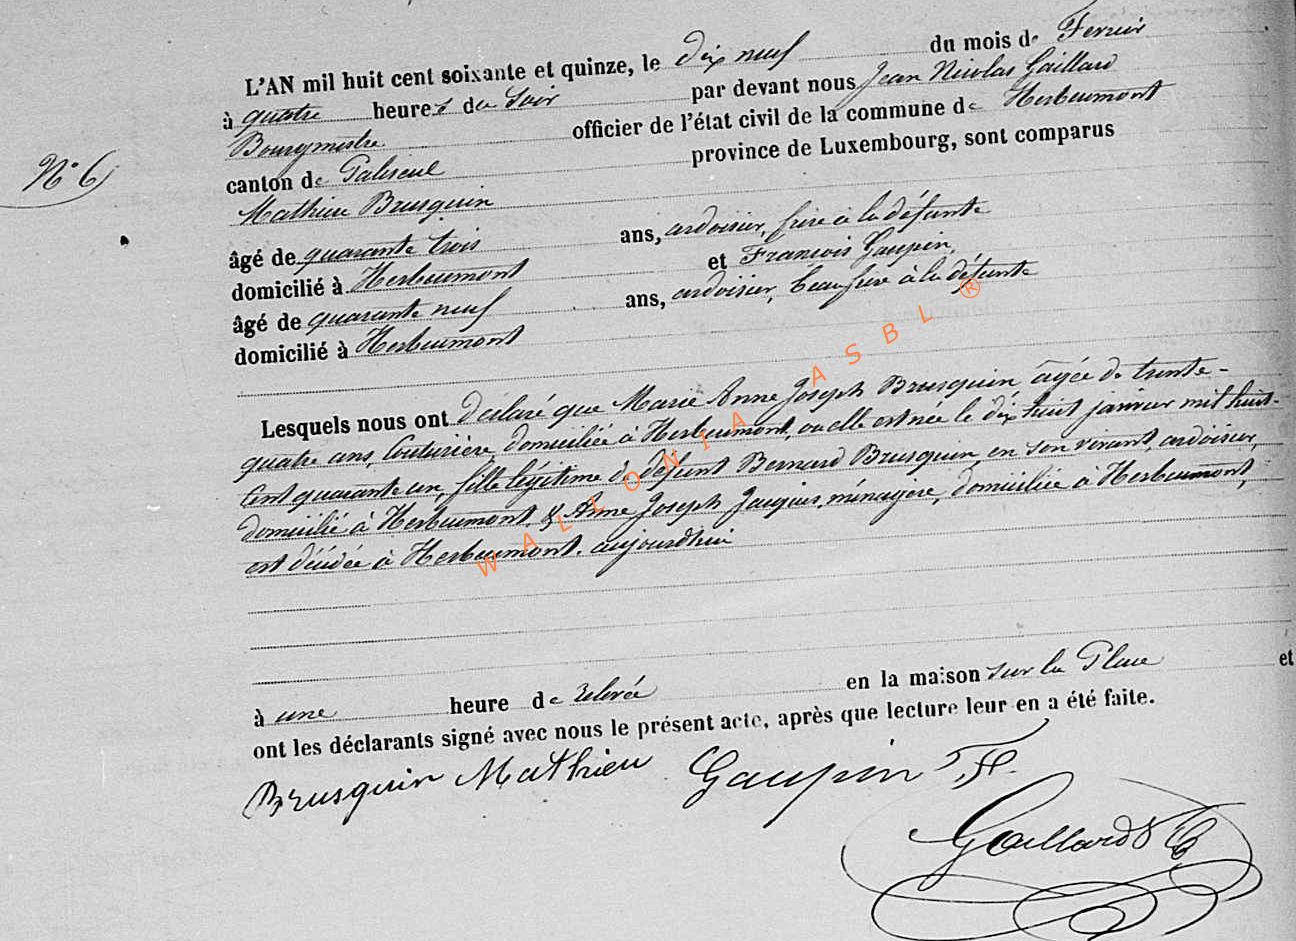 L'AN mil huit cent soixante et quinze, le dix neuf du mois de Fevrier
à quatre heures du Soir par devant nous Jean Nicolas Gaillard
Bourgmestre officier de l'état civil de la commune de Herbeumont
N° 6
canton de Paliseul province de Luxembourg, sont comparus
Mathieu Brusquin
âgé de quarante trois ans, ardoisier, frère à la défunte
domicilié à Herbeumont et François Gaupin,
âgé de quarante neuf ans, ardoisier, beau frère à la défunte
domicilié à Herbeumont
Lesquels nous ont déclaré que Marie Anne Joseph Brusquin âgée de trente-
quatre ans, Couturière, domiciliée à Herbeumont, ou elle est née le dix huit janvier mil huit-
cent quarante un, fille légitime de défunt Bernard Brusquin en son vivant, ardoisier,
domicilié à Herbeumont, & Anne Joseph Jacques, ménagère, domiciliée à Herbeumont,
est décédée à Herbeumont, aujourdhui
WALLONIA ASBL ®
à une heure de relevée en la maison sur la Place et
ont les déclarants signé avec nous le présent acte, après que lecture leur en a été faite.
Brusquin Mathieu Gaupin
Gaillard